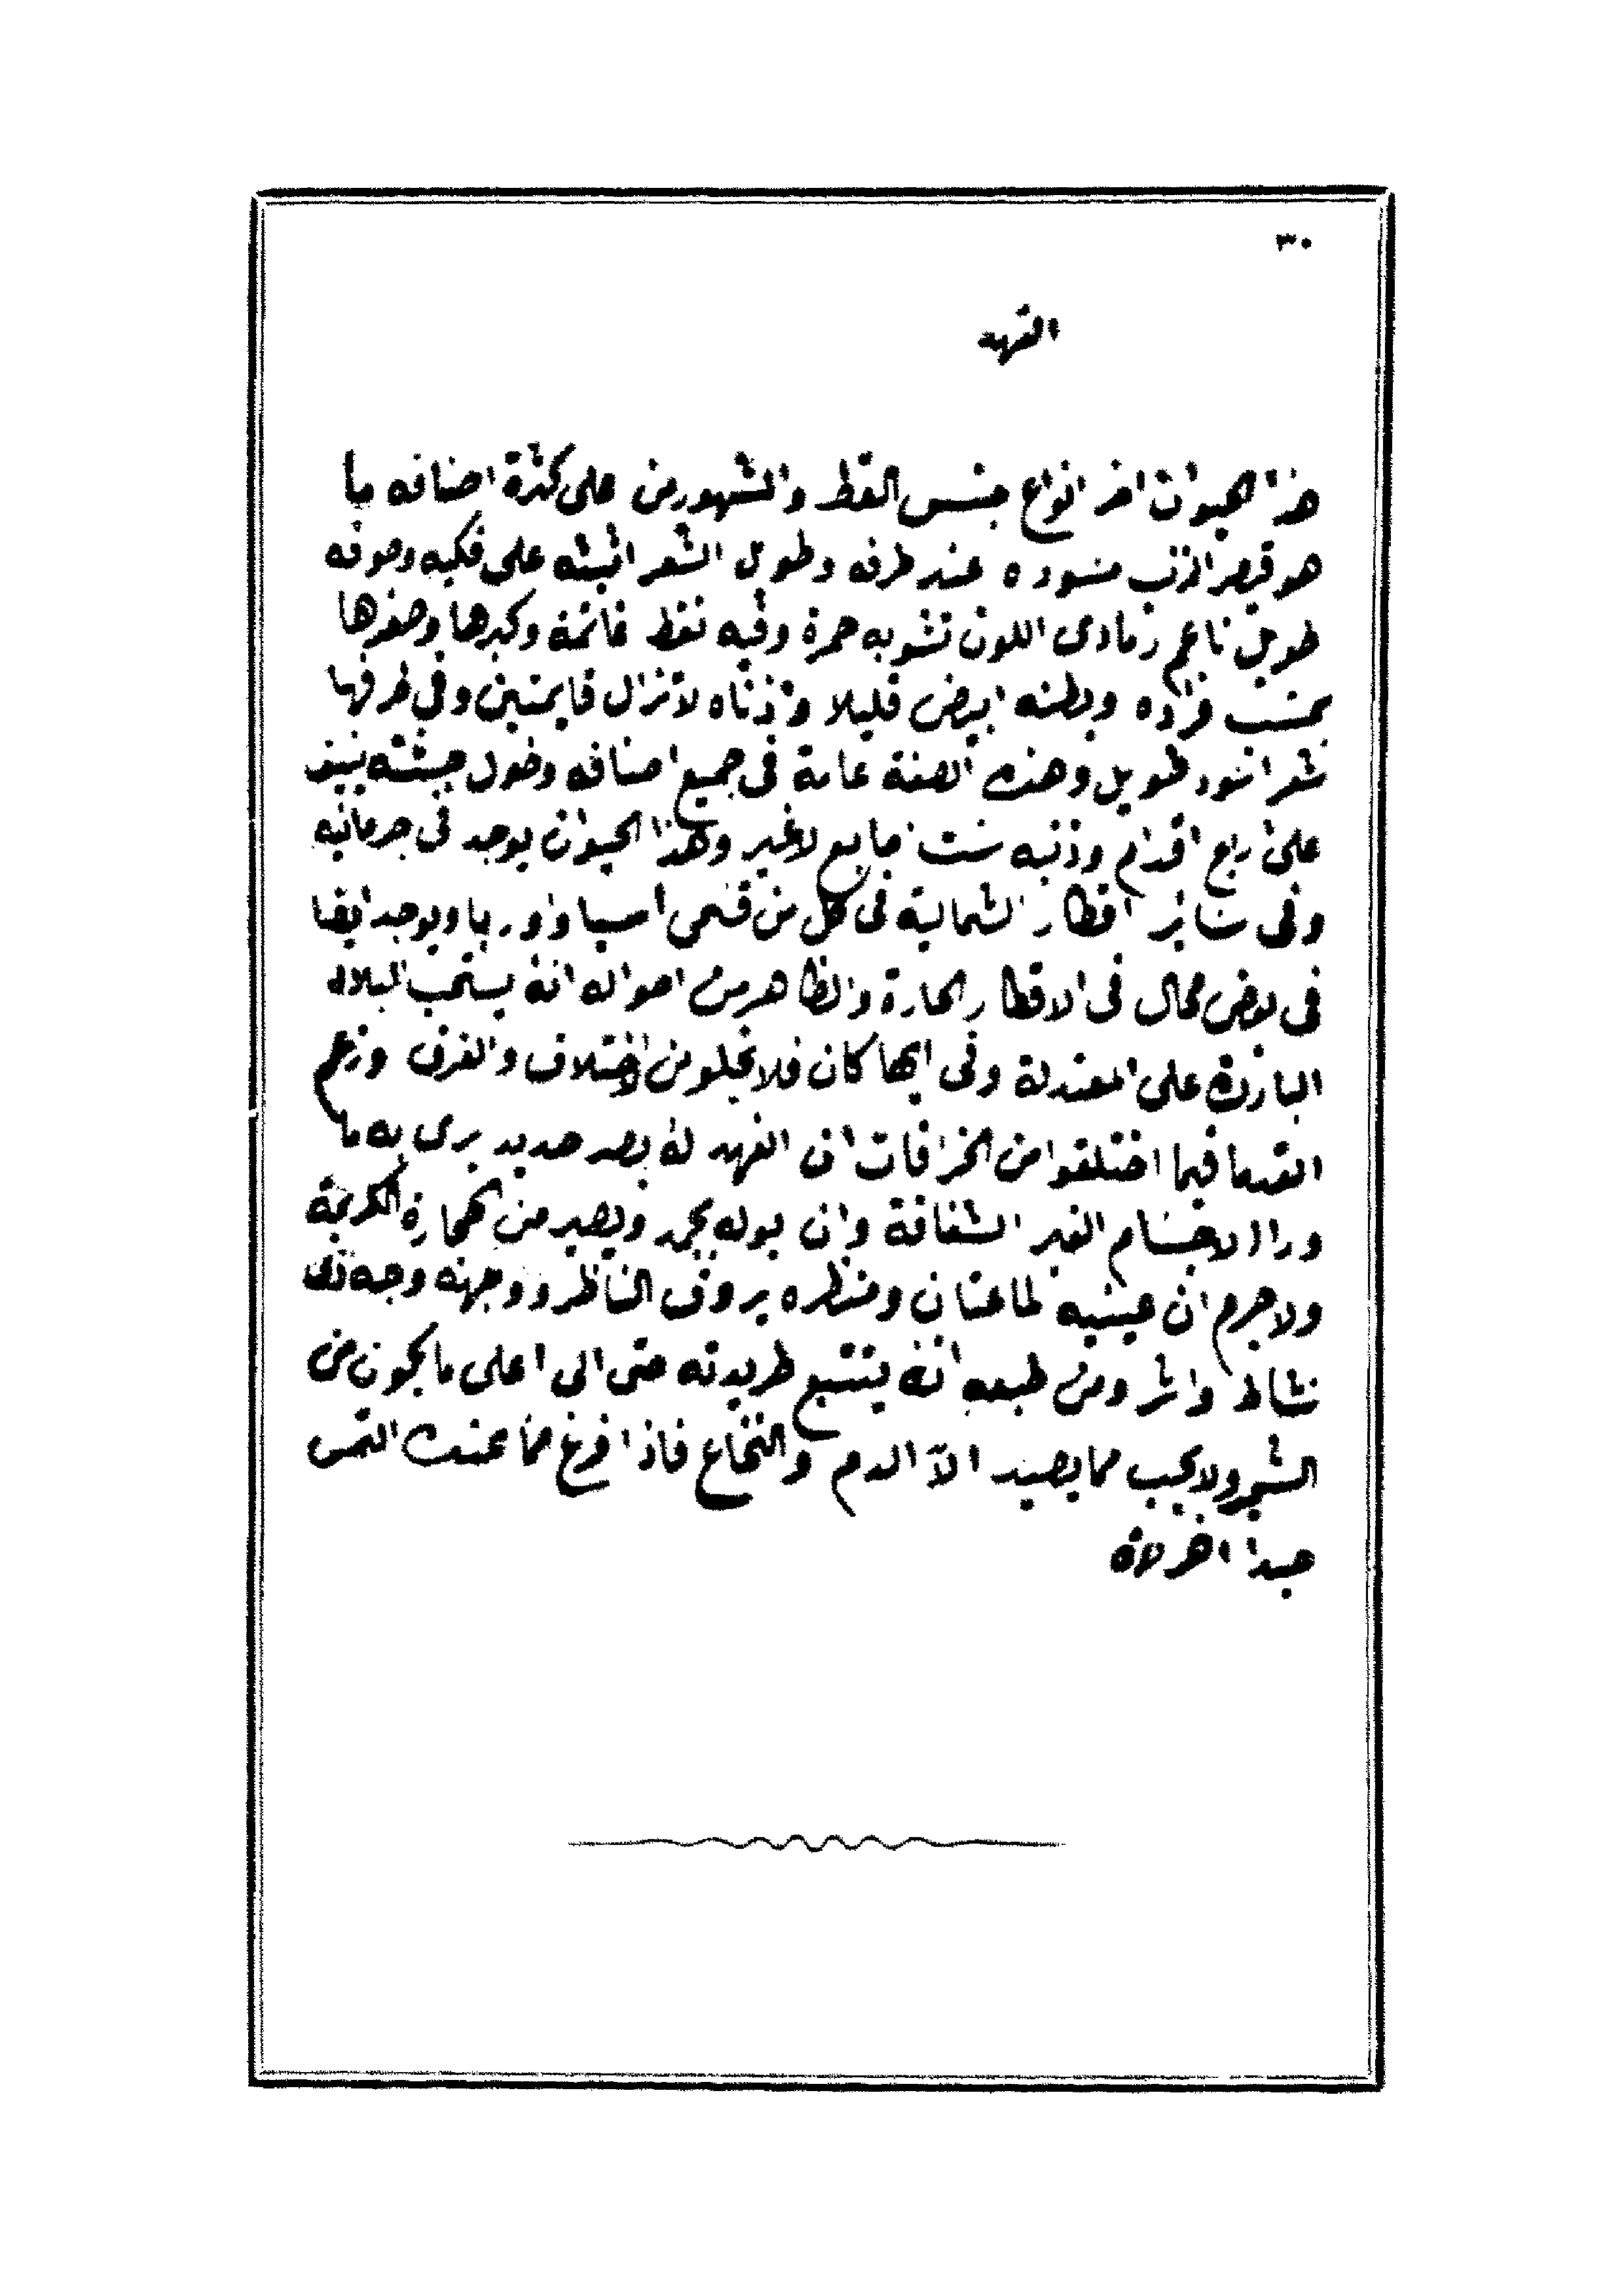 ٣٠
الفهد
هذا الحيوان اخر انواع جنس القط والمشهور من على كثرة اصنافه ما
هو قصير الذنب مسوده عند طرفه وطويل الشعر اثيثه على فكيه وصوفه
طويل ناعم رمادى اللون تشوبه حمرة وفيه نقط غائمة وكبرها وصغرها
بحسب افراده وبطنه ابيض قليلا واذناه لا تزال قايمتين وفي طرفها
شعر اسود طويل وهذه الصفة عامة في جميع اصنافه وطول جثته ينيف
على اربع اقدام وذنبه ست اصابع لا غير وهذا الحيوان يوجد في جرمانيه
وفي ساير اقطار الشمالية في كل من قسمى اسيا واوربا ويوجد ايضا
في بعض محال في الاقطار الحارة والظاهر من احواله انه يستحب البلاد
الباردة على المعتدلة وفي ايها كان فلا يخلو من اختلاف والفرق وزعم
القدما فيما اختلقوا من الخرافات ان الفهد له بصر حديد يرى به ما
ورا الاجسام الغير الشفافة وان بوله يجمد ويصير من الحجارة الكريمة
ولا جرم ان عينيه لماعتان ومنظره يروق الناظر ووجهه وجه ذى
نشاط واشر ومن طبعه انه يتتبع طريدته حتى الى اعلى ما يكون من
الشجر ولا يحب مما يصيد الا الدم والنخاع فاذا فرغ مما عنده التمس
صيدا اخر لاه